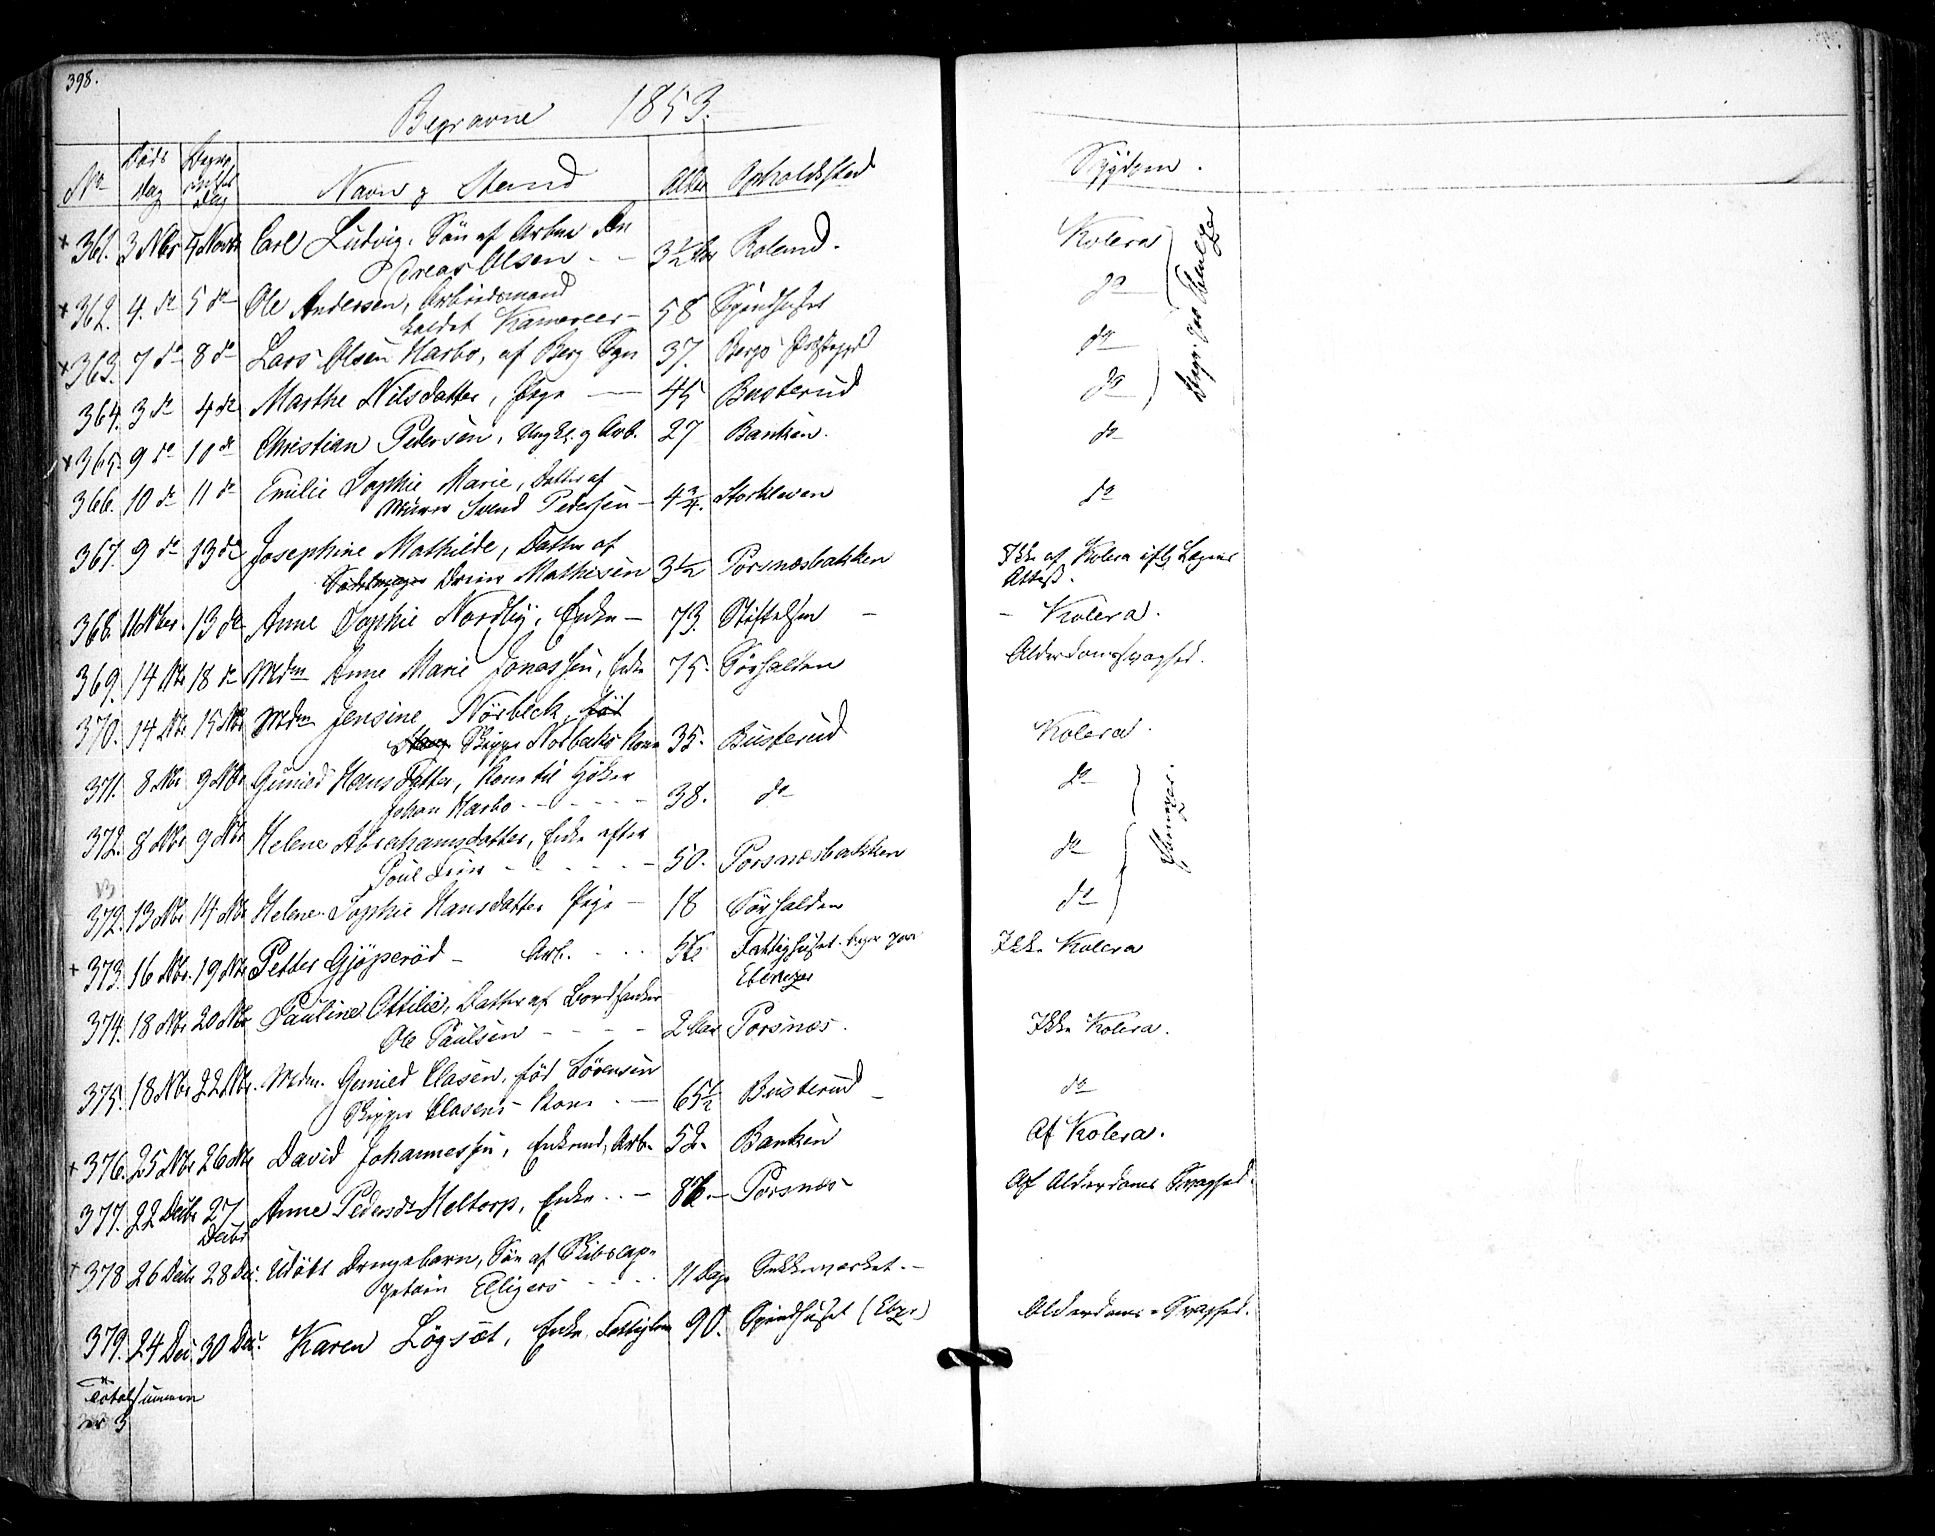 398.
Begravne 1853.
No Døds Dag Begravelses Dag Navn og Stand Alder Opholdssted Sygdom.
+ 361. 3 Nbr 4 Novbr Carl Ludvig, Søn af Arbm An
dreas Olsen - - 3½ Aar Roland. Kolera
+ 362. 4. do 5 do Ole Andersen, Arbeidsmand
kaldet Kamereer - 58 Spindhuset do
+ 363. 7 do 8 do Lars Olsen Harbo, af Berg Sgn 37. Bergs Præstegjd do
364. 3 do 4 do Marthe Nilsdatter, Pige - 45 Busterud do
Begr. paa Ebenezer
+ 365. 9 do 10 do Christian Pedersen, Ungk. og Arb. 27 Banken. do
366. 10 do 11 do Emilie Sophie Marie, Datter af
Murer Svend Pedersen - 4¾. Starkleven do
367. 9 do 13 do Josephine Mathilde, Datter af
Dreier Mathisen 3½ Porsnæsbakken Ikke af Kolera ifølg Lægens
Attest.
368. 11 Nbr. 13 do Anne Sophie Nordby, Enke - 73. Stiftelsen - - Kolera.
369. 14 Nbr 18 do Mdm Anne Marie Jonassen, Enke 75. Sørhalden Alderdomssvaghed.
370. 14 Nbr 15 Nbr Mdm Jensine Nørbeck, fød
Skipper Norbecks Kone 35. Busterud Kolera.
371. 8 Nbr 9 Nbr Gunild Hansdatter, Kone til Høker
Johan Harbo - - - - - 38. do do
372. 8 Nbr 9 Nbr Helene Abrahamsdatter, Enke efter
Poul - - - - - 50. Porsnæsbakken do
Ebenezer.
372. 13 Nbr 14 Nbr Helene Sophie Hansdatter Pige - 18 Sørhalden do
+ 373. 16 Nbr. 19 Nbr Petter Gjøperød - Arb. - - - 56 Fattighuset. begr paa Ikke Kolera
Ebenezer
374. 18 Nbr 20 Nbr Pauline Ottilie, Datter af Bordtanker
Ole Paulsen - - - - 2 Aar Porsnæs. Ikke Kolera.
375. 18 Nbr 22 Nbr. Mdm. Gunild Clasen, fød Sørensen
Skipper Clasens Kone - - 65½ Busterud - do
+ 376. 25 Nbr 26 Nbr David Johannessen, Enkemd, Arb. 52. Banken Af Kolera.
377. 22 Decbr 27
Decbr Anne Pedersdr Heltorp, Enke - - - 86 - Porsnæs Af Alderdoms Svaghed.
+ 378 26 Decbr 28 Dec. Udøbt Drengebarn, Søn af Skibscap-
petain Elligers - - - - - 11 Dage Sukkerværket. -
379. 24 Dec 30 Dec. Karen Løgsæt, Enke, Fattiglem 90. Spindhuset (Ebzr) Alderdoms-Svaghed.
Totalsummen
er 3